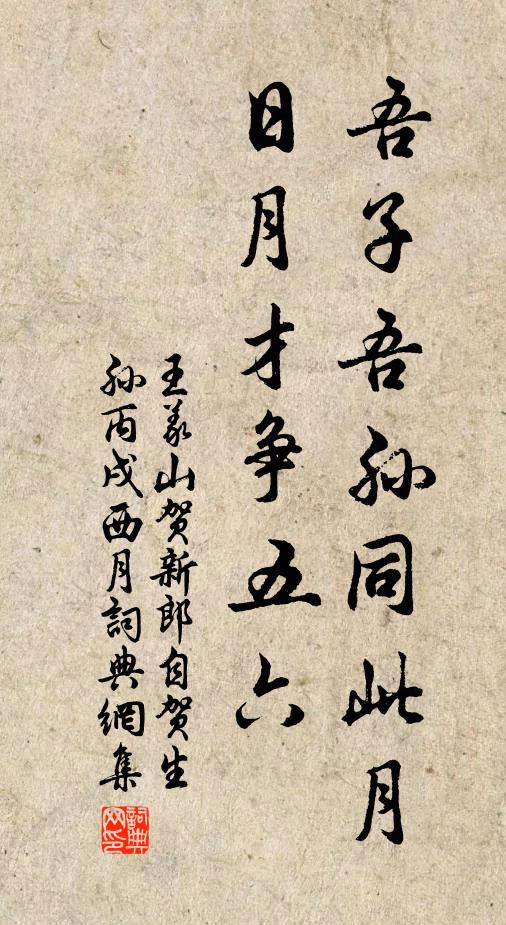 吾子吾孙同此月
日月才争五六
王义山贺新郎自贺生
孙丙戌酉月詞典網集
詞典网印